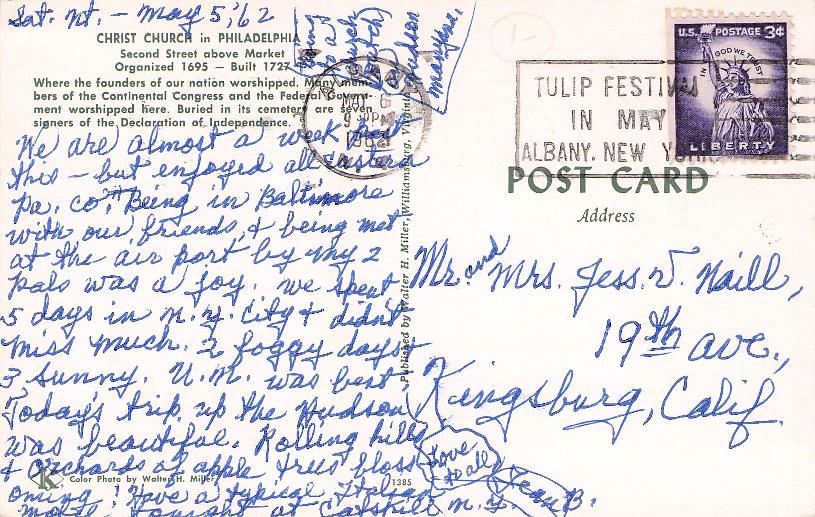 Sat. nt. - May 5, '62
CHRIST CHURCH in PHILADELPHIA
Second Street above Market
Organized 1695 — Built 1727
Where the founders of our nation worshipped. Many mem-
bers of the Continental Congress and the Federal Govern-
ment worshipped here. Buried in its cemetery are seven
signers of the Declaration of Independence.
We are almost a week past
this - but enjoyed all eastern
Pa. co. Being in Baltimore
with our friends & being met
at the air port by my 2
pals was a joy. We spent
5 days in N.Y. City & didn't
miss much. 2 foggy days
3 sunny. U.N. was best
Today's trip up the Hudson
was beautiful. Rolling hills
& orchards of apple trees bloss-
oming! Have a typical Italian
tonight at Catskill N.Y.
Love
to all
Jean B.
K
Color Photo by Walter H. Miller
1385
Published by Walter H. Miller, Williamsburg, Virginia
Hudson
MAY 6
930PM
1962
TULIP FESTIVAL
IN MAY
ALBANY, NEW YORK
U.S. POSTAGE 3¢
IN GOD WE TRUST
LIBERTY
POST CARD
Address
Mr. and Mrs. Jess. V. Naill,
19th ave.,
Kingsburg, Calif.
1-